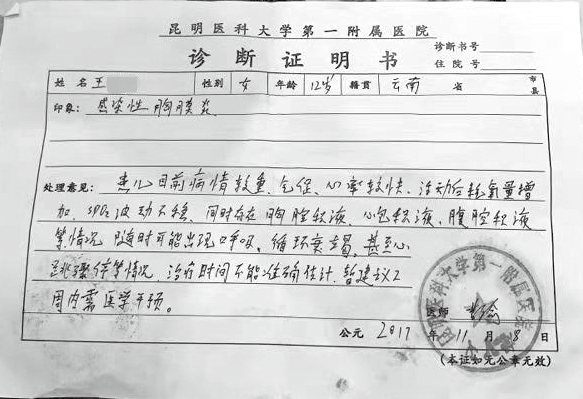 昆明医科大学第一附属医院
诊断证明书
诊断书号
住院号
姓名 王 性别 女 年龄 12岁 籍贯 云南 省 市县
印象: 感染性胸膜炎
处理意见: 患儿目前病情较重、气促、心率较快、活动后耗氧量增
加、SPO2波动不稳、同时存在胸腔积液、心包积液、腹腔积液
等情况 随时可能出现呼吸、循环衰竭、甚至心
跳骤停等情况、治疗时间不能准确估计、暂建议2
周内需医学干预。
昆明医科大学第一附属医院
医师
公元 2017 年 11 月 8 日
(本证如无公章无效)